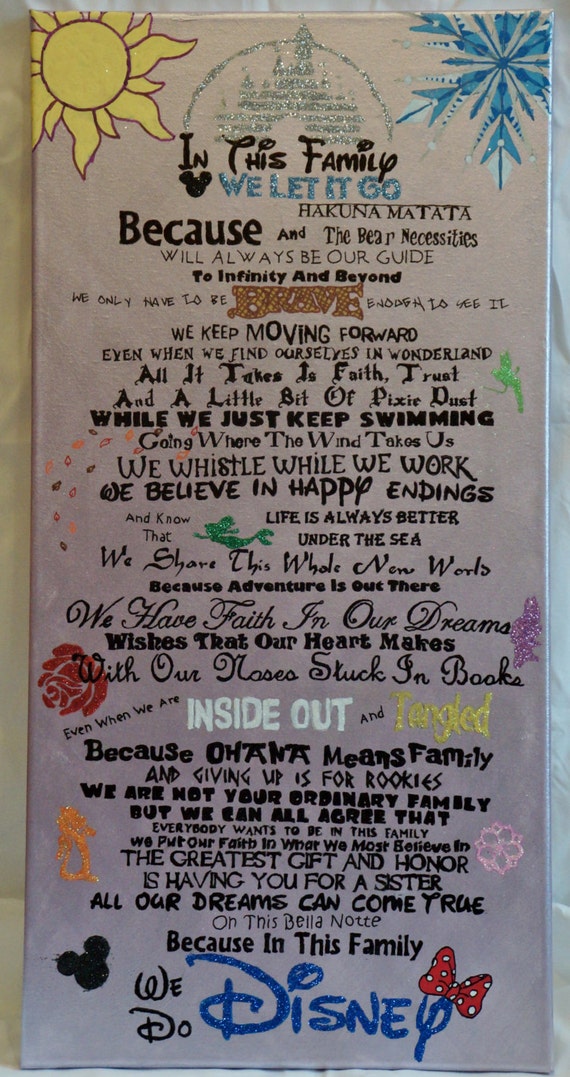 In This Family
WE LET IT GO
HAKUNA MATATA
Because And The Bear Necessities
WILL ALWAYS BE OUR GUIDE
To Infinity And Beyond
WE ONLY HAVE TO BE BRAVE ENOUGH TO SEE IT
WE KEEP MOVING FORWARD
EVEN WHEN WE FIND OURSELVES IN WONDERLAND
All It Takes Is Faith, Trust
And A Little Bit Of Pixie Dust
WHILE WE JUST KEEP SWIMMING
Going Where The Wind Takes Us
WE WHISTLE WHILE WE WORK
WE BELIEVE IN HAPPY ENDINGS
And Know That
LIFE IS ALWAYS BETTER
UNDER THE SEA
We Share This Whole New World
Because Adventure Is Out There
We Have Faith In Our Dreams
Wishes That Our Heart Makes
With Our Noses Stuck In Books
Even When We Are INSIDE OUT And Tangled
Because OHANA Means Family
AND GIVING UP IS FOR ROOKIES
WE ARE NOT YOUR ORDINARY FAMILY
BUT WE CAN ALL AGREE THAT
EVERYBODY WANTS TO BE IN THIS FAMILY
We Put Our Faith In What We Most Believe In
THE GREATEST GIFT AND HONOR
IS HAVING YOU FOR A SISTER
ALL OUR DREAMS CAN COME TRUE
On This Bella Notte
Because In This Family
We Do Disney